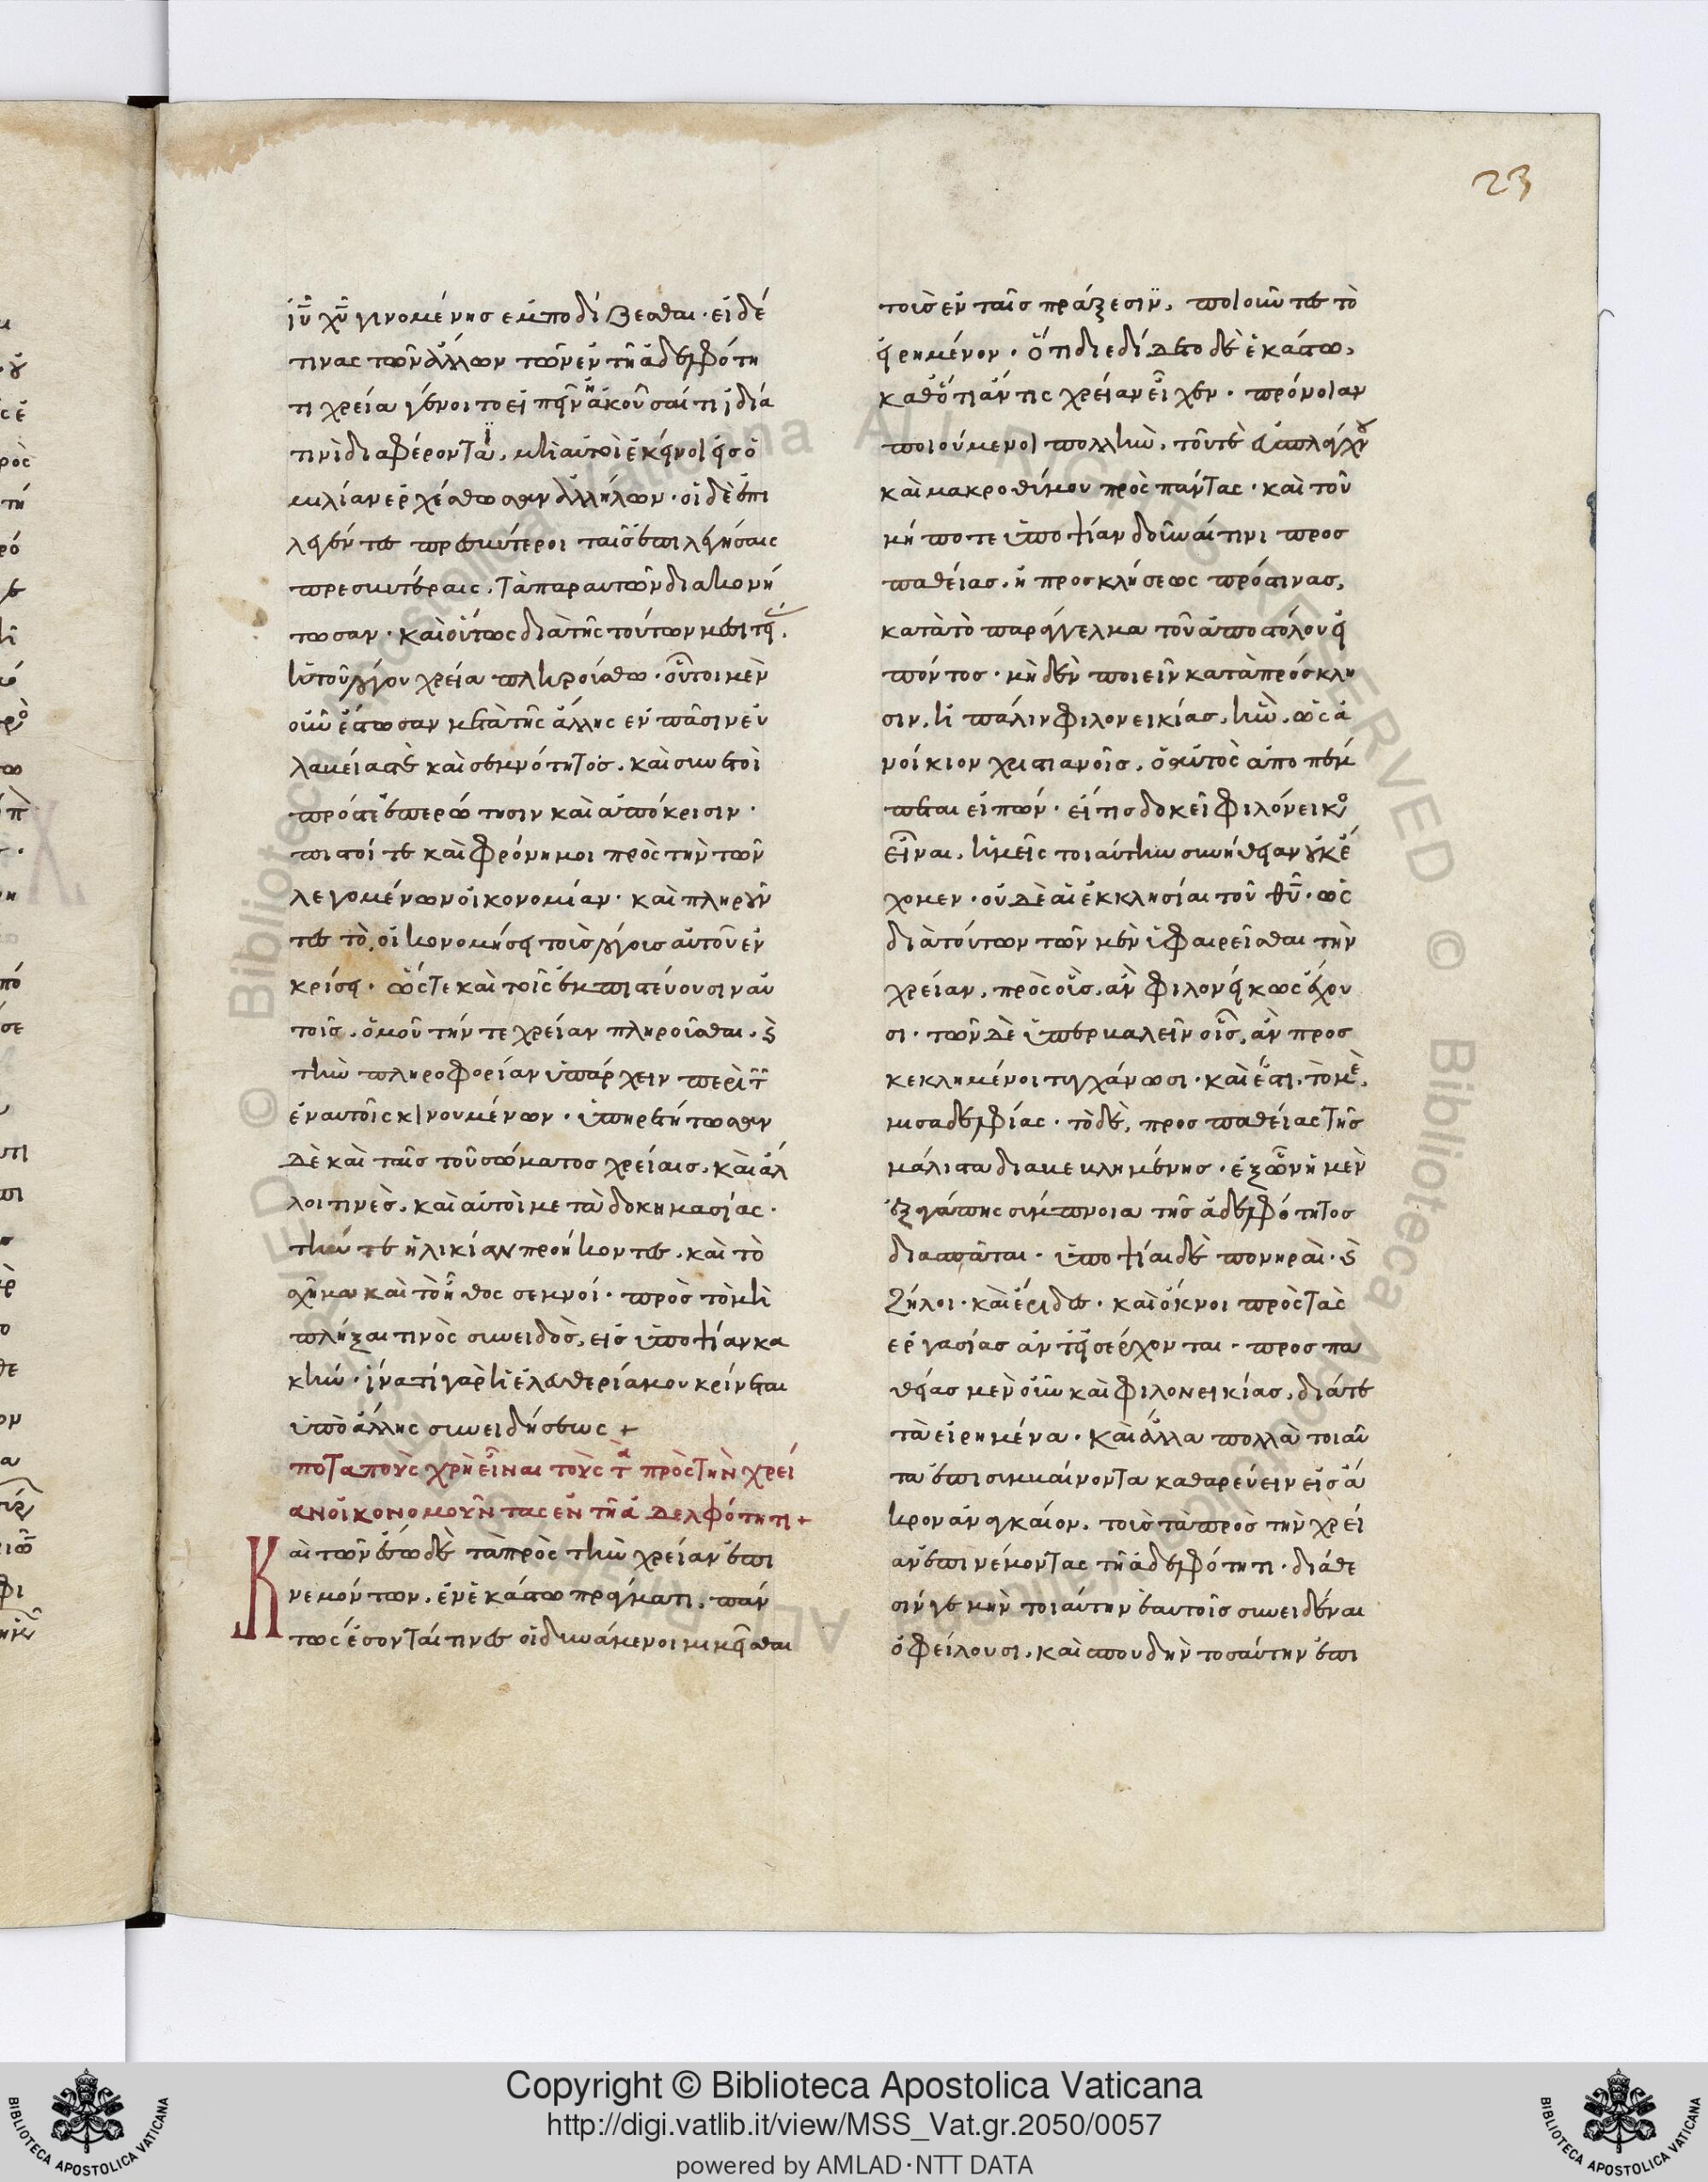 23
ἰῦ χῦ γινομένης ἐμποδίζεσθαι· εἰ δέ
τινας τῶν ἄλλων τῶν ἐν τῇ ἀδελφότητι
τι χρεία γένοιτο εἰπεῖν ἢ ἀκοῦσαί τι ἰδίᾳ
τινὶ διαφέροντα, μὴ αὐτοὶ ἐκεῖνοι εἰς ὁ
μιλίαν ἐρχέσθωσαν ἀλλήλων· οἱ δὲ ἐπι
λεγέντες πρεσβύτεροι ταῖς ἐπιλεγείσαις
πρεσβυτέραις, τὰ παρ αυτῶν διακονεί
τωσαν· καὶ οὕτως διὰ τῆς τούτων μεσιτεί
ἡ τοῦ λόγου χρεία πληρούσθω· οὗτοι μὲν
οὖν ἔστωσαν μετὰ τῆς ἄλλης ἐν πᾶσιν εὐ
λαβείας τὲ καὶ σεμνότητος, καὶ συνετοὶ
πρός τε ἐπερώτησιν καὶ ἀπόκρισιν·
πιστοί τε καὶ φρόνημοι πρὸς τὴν τῶν
λεγομένων οἰκονομίαν· καὶ πληροῦν
τες τὸ, οἰκονομήσει τοὺς λόγους αὐτοῦ ἐν
κρίσει· ὥστε καὶ τοῖς ἐμπιστεύουσιν αὐ
τοῖς, ὁμοῦ τήν τε χρείαν πληροῦσθαι, ϗ
τὴν πληροφορίαν ὑπάρχειν περὶ τ
ἐν αυτοῖς κινουμένων· ὑπηρετήτωσαν
δὲ καὶ ταῖς τοῦ σώματος χρείαις, καὶ ἄλ
λοι τινὲς, καὶ αὐτοὶ μετὰ δοκημασίας·
τήν τε ἡλικίαν προήκοντες, καὶ τὸ
σχῆμα καὶ τὸ ἦθος σεμνοί· πρὸς τὸ μὴ
πλήξαι τινὸς συνειδὸς, εἰς ὑποψίαν κα
κήν· ἵνα τί γὰρ ἡ ἐλευθερία μου κρίνεται
ὑπὸ ἄλλης συνειδήσεως +
ποταποὺς χρὴ εἶναι τοὺς τὰ πρὸς τὴν χρεί
αν οἰκονομοῦντας ἐν τῇ ἀδελφότητι +
Καὶ τῶν ἔσω δὲ τὰ πρὸς τὴν χρείαν ἐπι
νεμόντων, ἐν ἑκάστω πράγματι, πάν
τως ἔσονταί τινες οἱ δυνάμενοι μιμεῖσθαι
τοὺς ἐν ταῖς πράξεσιν, ποιοῦντες τὸ
εἰρημένον· ὅτι διεδίδετο δὲ ἑκάστω,
καθότι ἄν τις χρείαν εἶχεν· πρόνοιαν
ποιούμενοι πολλὴν, τοῦ τὲ εὐσπλάγχνου
καὶ μακροθύμου πρὸς πάντας· καὶ τοῦ
μή ποτε ὑποψίαν δοῦναί τινι προς
παθείας, ἢ προσκλήσεως πρός τινας,
κατὰ τὸ παράγγελμα τοῦ ἀποστόλου εἰ
πόντος· μηδὲν ποιεῖν κατὰ πρόσκλη
σιν, ἢ πάλιν φιλονεικίας, ἣν, ὡς ἀ
νοίκιον χριστιανοῖς, ὁ αὐτὸς ἀποπέμ
πεται εἰπών· εἴ τις δοκεῖ φιλόνεικος
εἶναι, ἡμεῖς τοιαύτην συνήθειαν οὐκ ἔ
χομεν· οὐδὲ αἱ ἐκκλησίαι τοῦ θῦ· ὡς
διὰ τούτων τῶν μὲν ὑφαιρεῖσθαι τὴν
χρείαν, πρὸς οὓς, ἂν φιλονείκως ἔχου
σι· τῶν δὲ ὑπερβαλεῖν οἷς, ἂν προς
κεκλημένοι τυγχάνωσι· καὶ ἔστι, τὸ μὲ,
μισαδελφίας· τὸ δὲ, προσπαθείας τῆς
μάλιστα διαβεβλημένης· ἐξ ὧν ἡ μὲν
ἐξ ἀγάπης σύμπνοια τῆς ἀδελφότητος
διασπᾶται· ὑποψίαι δὲ πονηραὶ· ϗ
ζήλοι· καὶ ἔριδες· καὶ ὄκνοι πρὸς τὰς
ἐργασίας ἀντεισέρχονται· προσπα
θείας μὲν οὖν καὶ φιλονεικίας, διά τε
τὰ εἰρημένα· καὶ ἄλλα πολλὰ τοιαῦ
τα ἐπισυμβαίνοντα καθαρεύειν εἰς ἄ
κρον ἀναγκαίον, τοὺς τὰ πρὸς τὴν χρεί
αν ἐπινέμοντας τῇ ἀδελφότητι· διάθε
σίν γε μὴν τοιαύτην ἑαυτοῖς συνειδέναι
ὀφείλουσι, καὶ σπουδὴν τοσαύτην ἐπι
Copyright © Biblioteca Apostolica Vaticana
http://digi.vatlib.it/view/MSS_Vat.gr.2050/0057
powered by AMLAD·NTT DATA